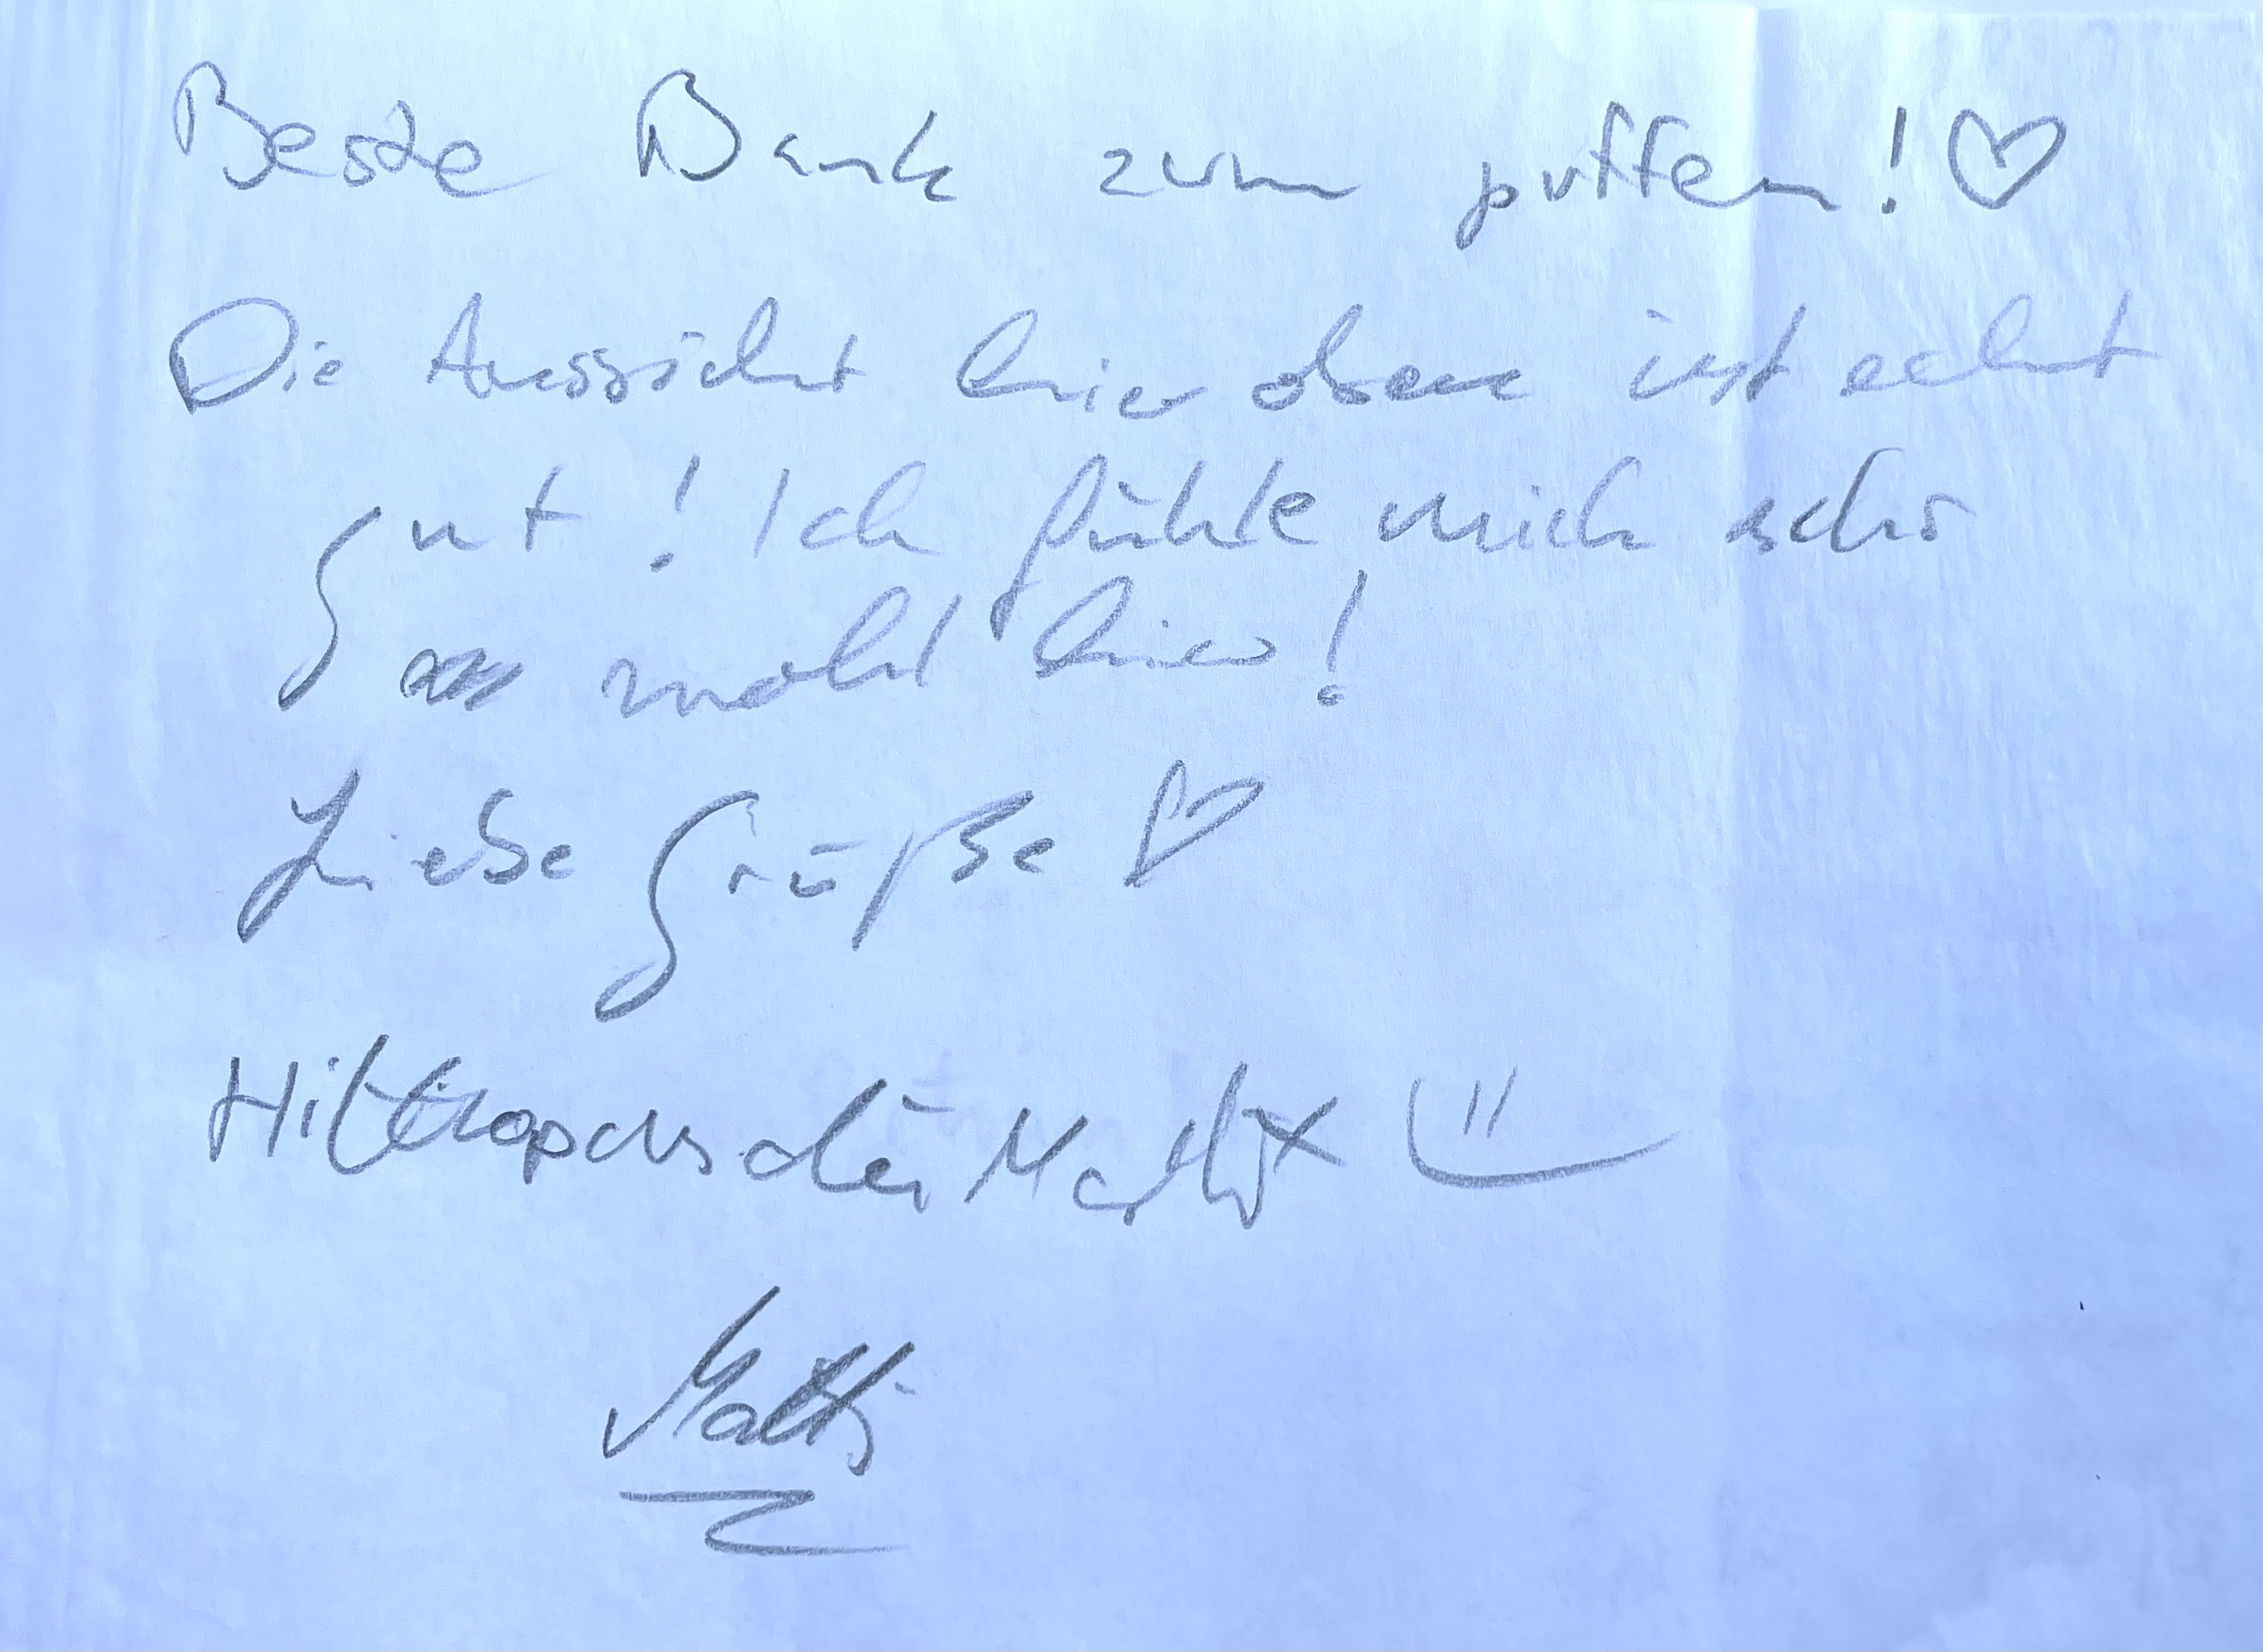 Beste Bank zum puffen! ♡
Die Aussicht hier oben ist echt
gut! Ich fühle mich sehr
wohl hier!
Liebe Grüße ♡
der
Matti